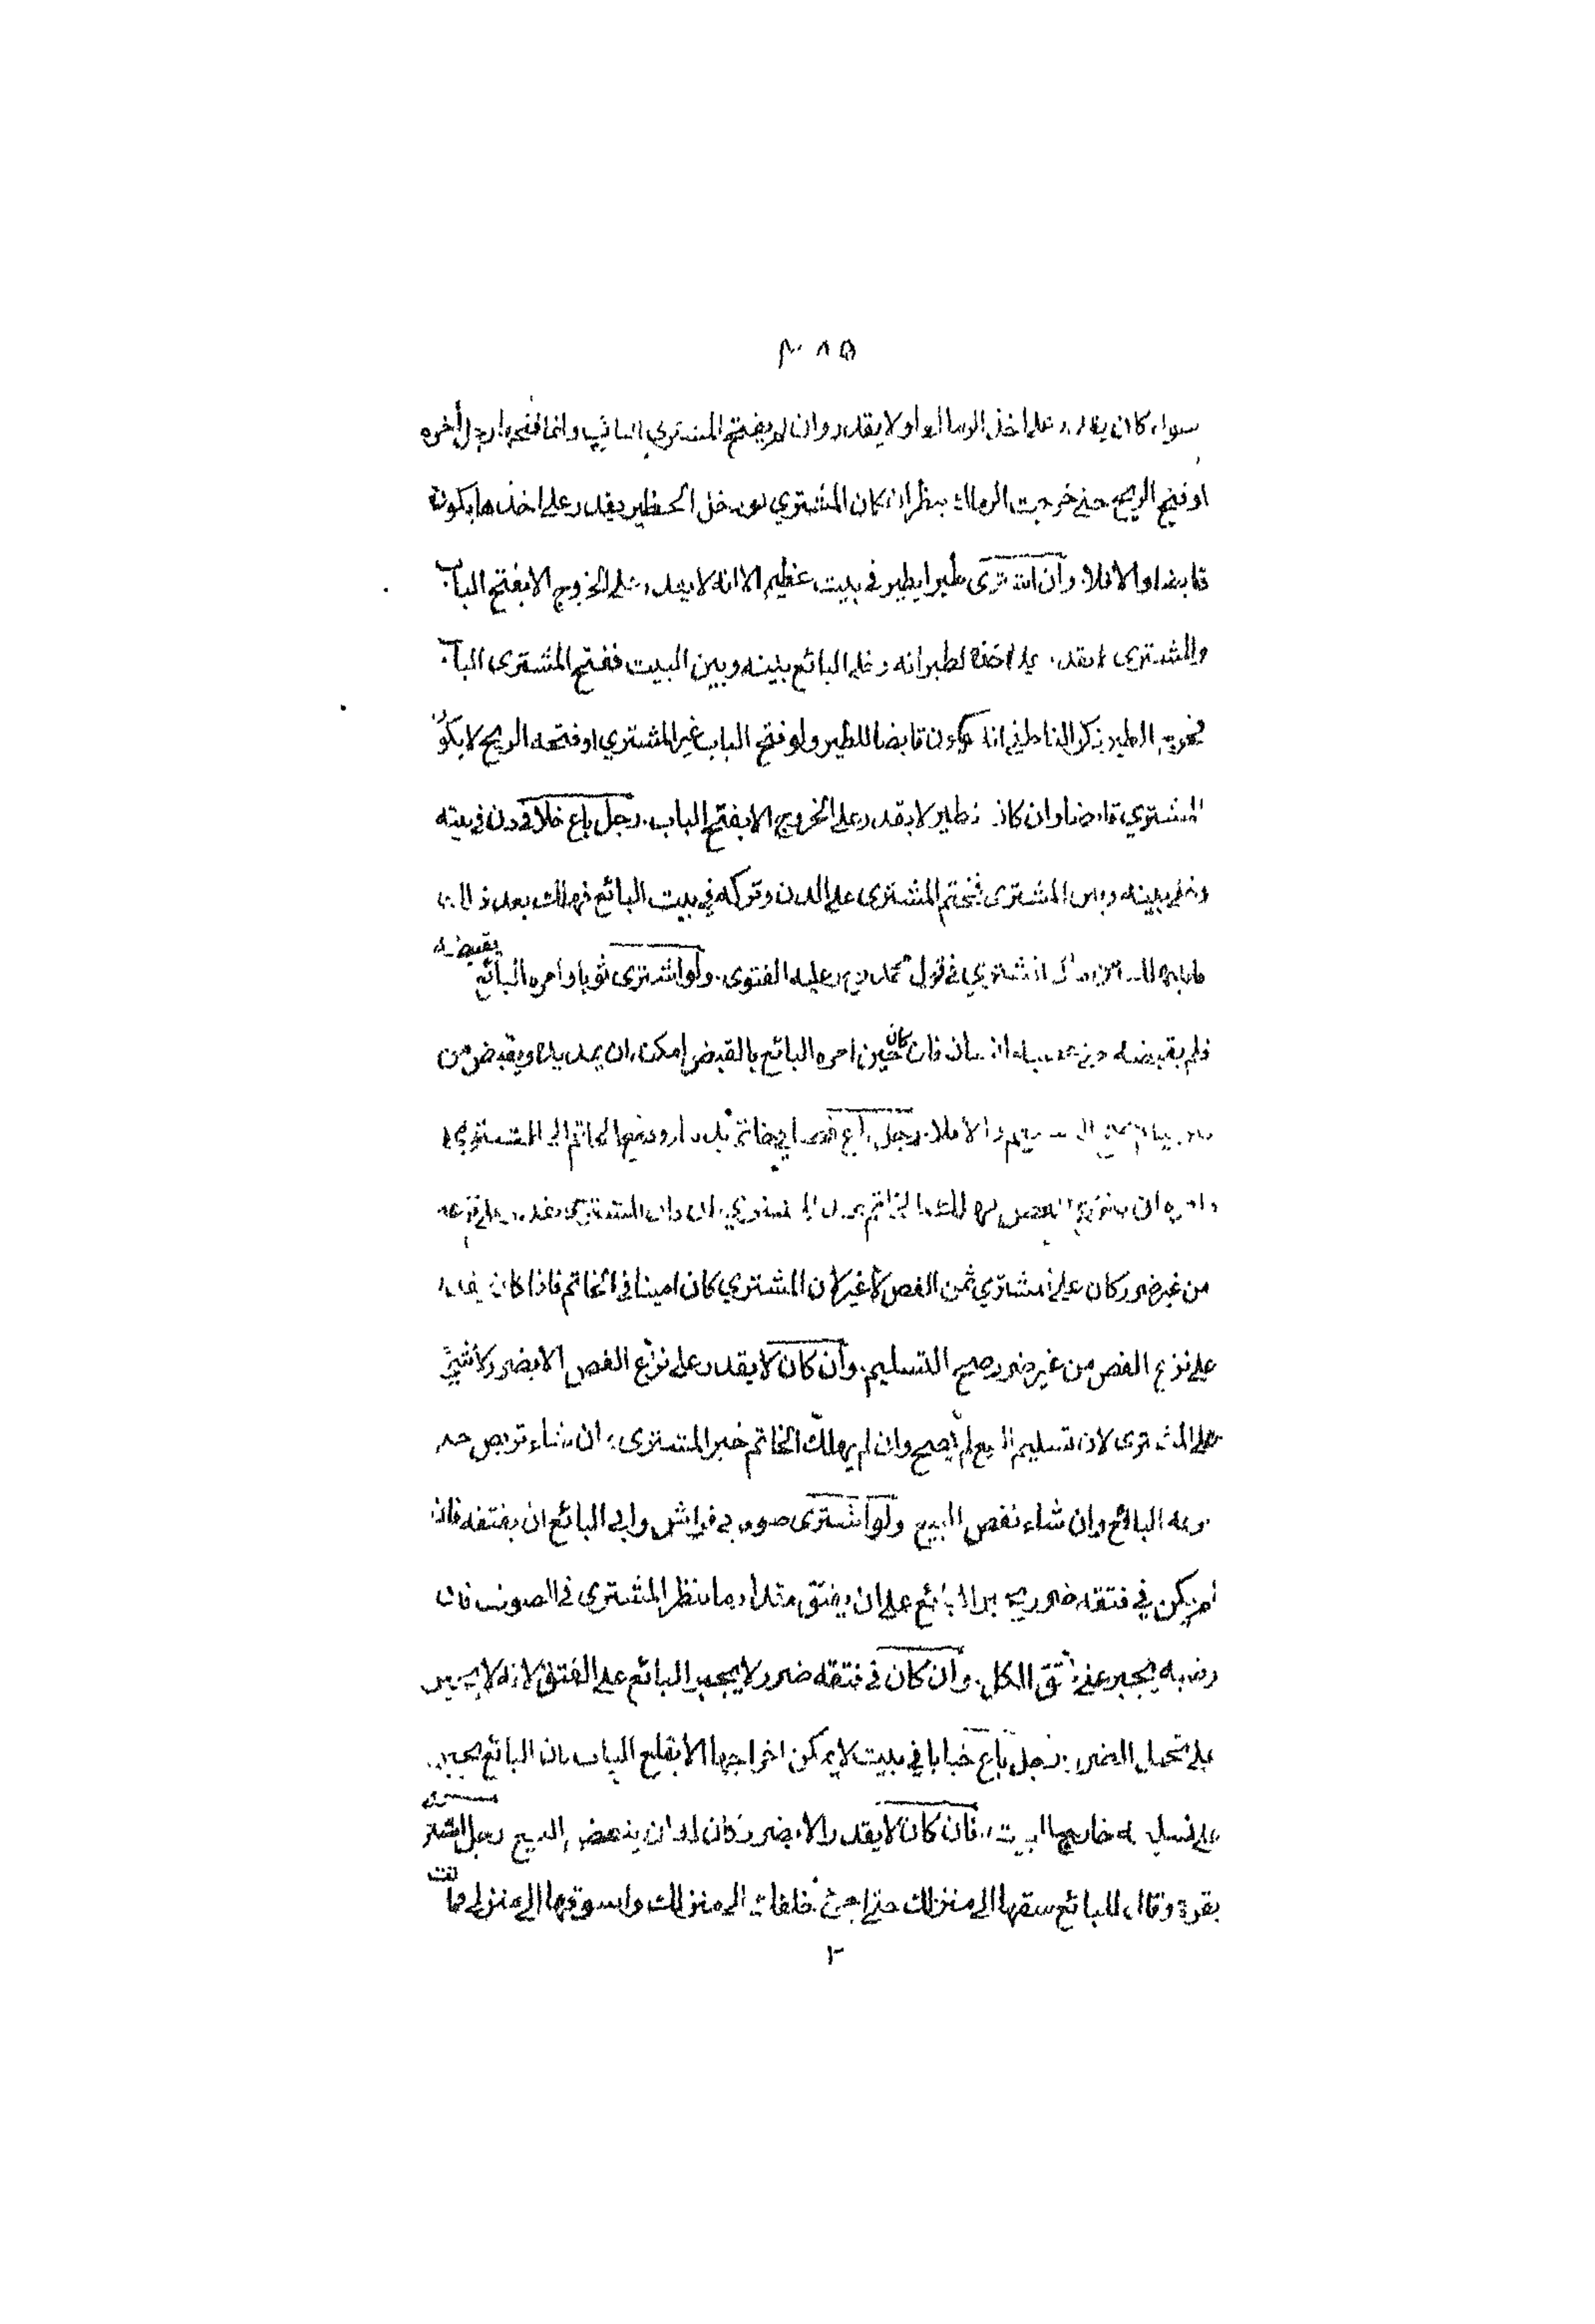 ٣٨٥
سواء كان يقدر على اخذ الرماك او لا يقدر وان لم يفتح المشتري الباب وانما فتحها رجل أخره
او فتح الريح حتى خرجت الرماك ينظر ان كان المشتري لو دخل الحظير يقدر على اخذها يكون
قابضا والا فلا. وان اشترى طيرا يطير في بيت عظيم الا انه لا يقدر على الخروج الا بفتح الباب
والمشتري لا يقدر على اخذه لطيرانه وخلى البائع بينه وبين البيت ففتح المشترى الباب
فخرج الطير ذكر الناطفي انه يكون قابضا للطير ولو فتح الباب غير المشتري او فتحه الريح لا يكون
المشتري قابضا وان كان الطير لا يقدر على الخروج الا بفتح الباب. رجل باع خلا في دن في بيته
وخلى بينه وبين المشترى فختم المشترى على الدن وتركه في بيت البائع فهلك بعد ذلك
فانه يهلك من مال المشتري في قول محمد رح وعليه الفتوى. ولو اشترى ثوبا وامره البائع بقبضه
فلم يقبضه حتى غصبه انسان فان كان حين امره البائع بالقبض امكنه ان يمد يده ويقبض من
غير قيام صح التسليم والا فلا. رجل باع فصا في خاتم بدينار ودفع الخاتم الى المشتري
وامره ان ينزع الفص فهلك الخاتم عند المشتري ان كان المشتري يقدر على نزعه
من غير ضرر كان على المشتري ثمن الفص لا غير لان المشتري كان امينا في الخاتم فاذا كان يقدر
على نزع الفص من غير ضرر صح التسليم. وان كان لا يقدر على نزع الفص الا بضرر لا شيء
على المشترى لان تسليم البيع لم يصح وان لم يهلك الخاتم خير المشترى ان شاء تربص حتى
ينزعه البائع وان شاء نقض البيع ولو اشترى صوفا في فراش وابى البائع ان يفتقه فان
لم يكن في فتقه ضرر يجبر البائع على ان يفتق مقدار ما ينظر المشترى في الصوف فان
رضي به يجبر على فتق الكل. وان كان في فتقه ضرر لا يجبر البائع على الفتق لانه لا يجبر
على تحمل الضرر. رجل باع خبابا في بيت لا يمكن اخراجها الا بقلع الباب فان البائع يجبر
على تسليمه خارج البيت، فان كان لا يقدر الا بضرر كان له ان ينقض البيع رجل اشترى
بقرة وقال للبائع سقها الى منزلك حتى اجئ خلفك الى منزلك واسوقها الى منزلي فماتت
٢